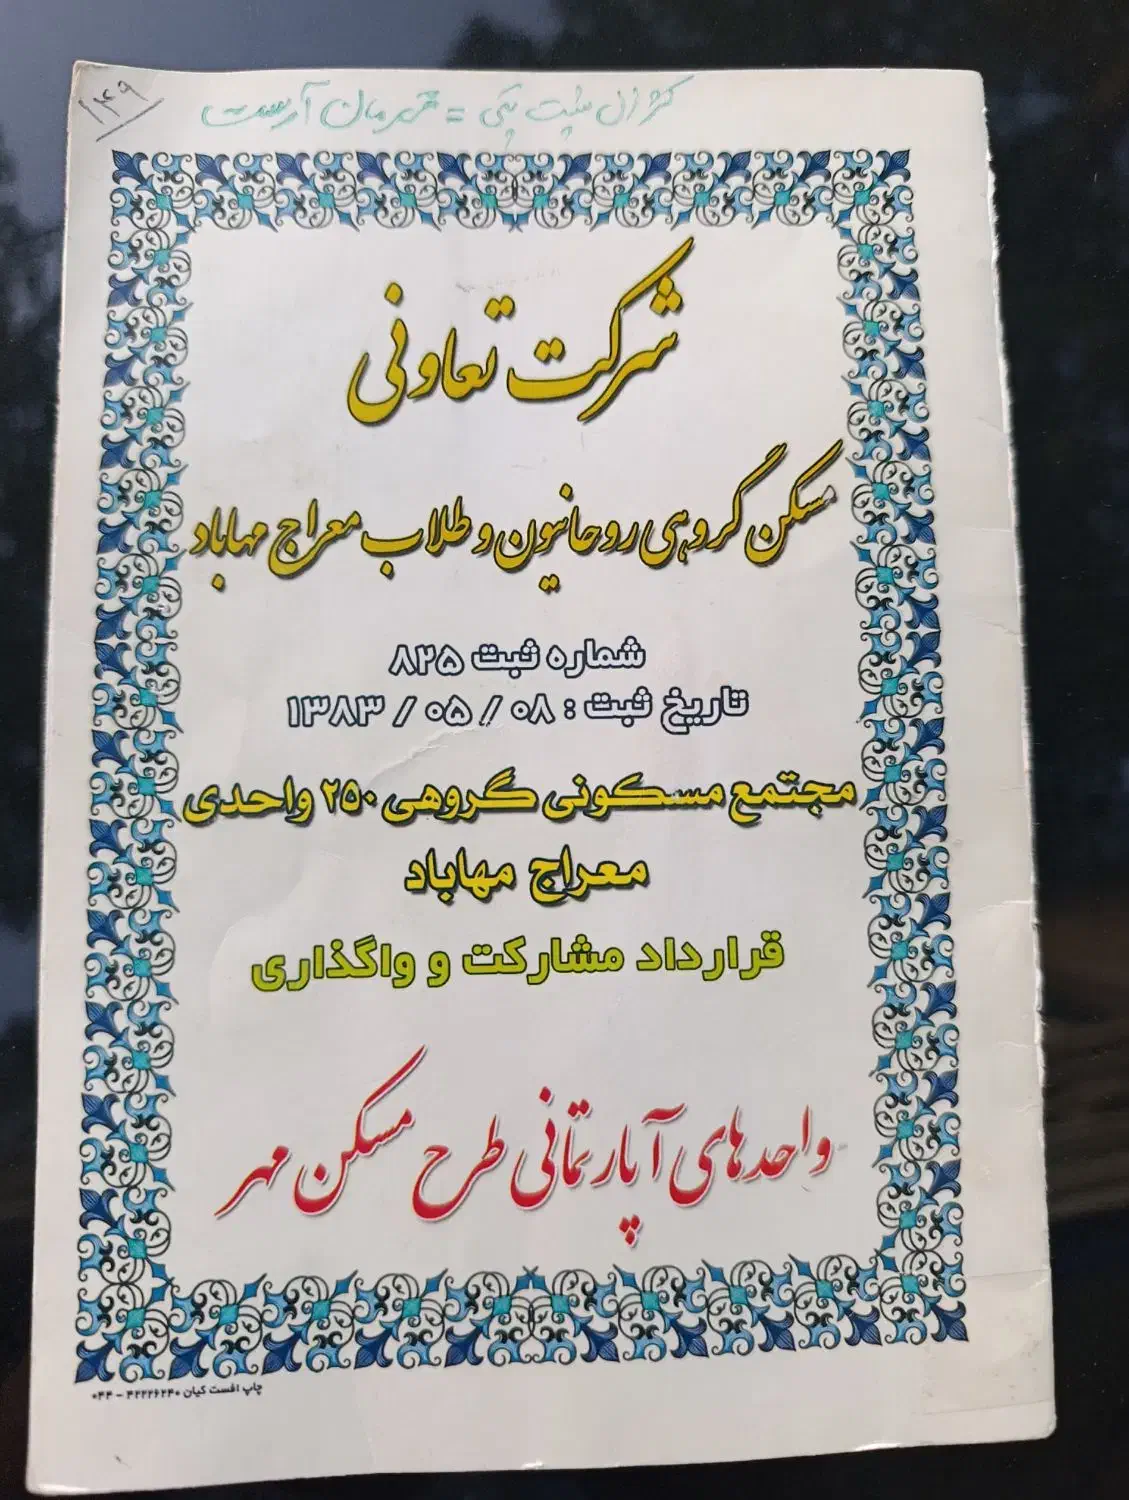 ۱۴۹
= قهرمان آرست
شرکت تعاونی
مسکن گروهی روحانیون و طلاب معراج مهاباد
شماره ثبت ۸۲۵
تاریخ ثبت : ۰۸ / ۰۵ / ۱۳۸۳
مجتمع مسکونی گروهی ۲۵۰ واحدی
معراج مهاباد
قرارداد مشارکت و واگذاری
واحدهای آپارتمانی طرح مسکن مهر
چاپ افست کیان ۴۲۲۲۶۲۴۰ - ۰۴۴